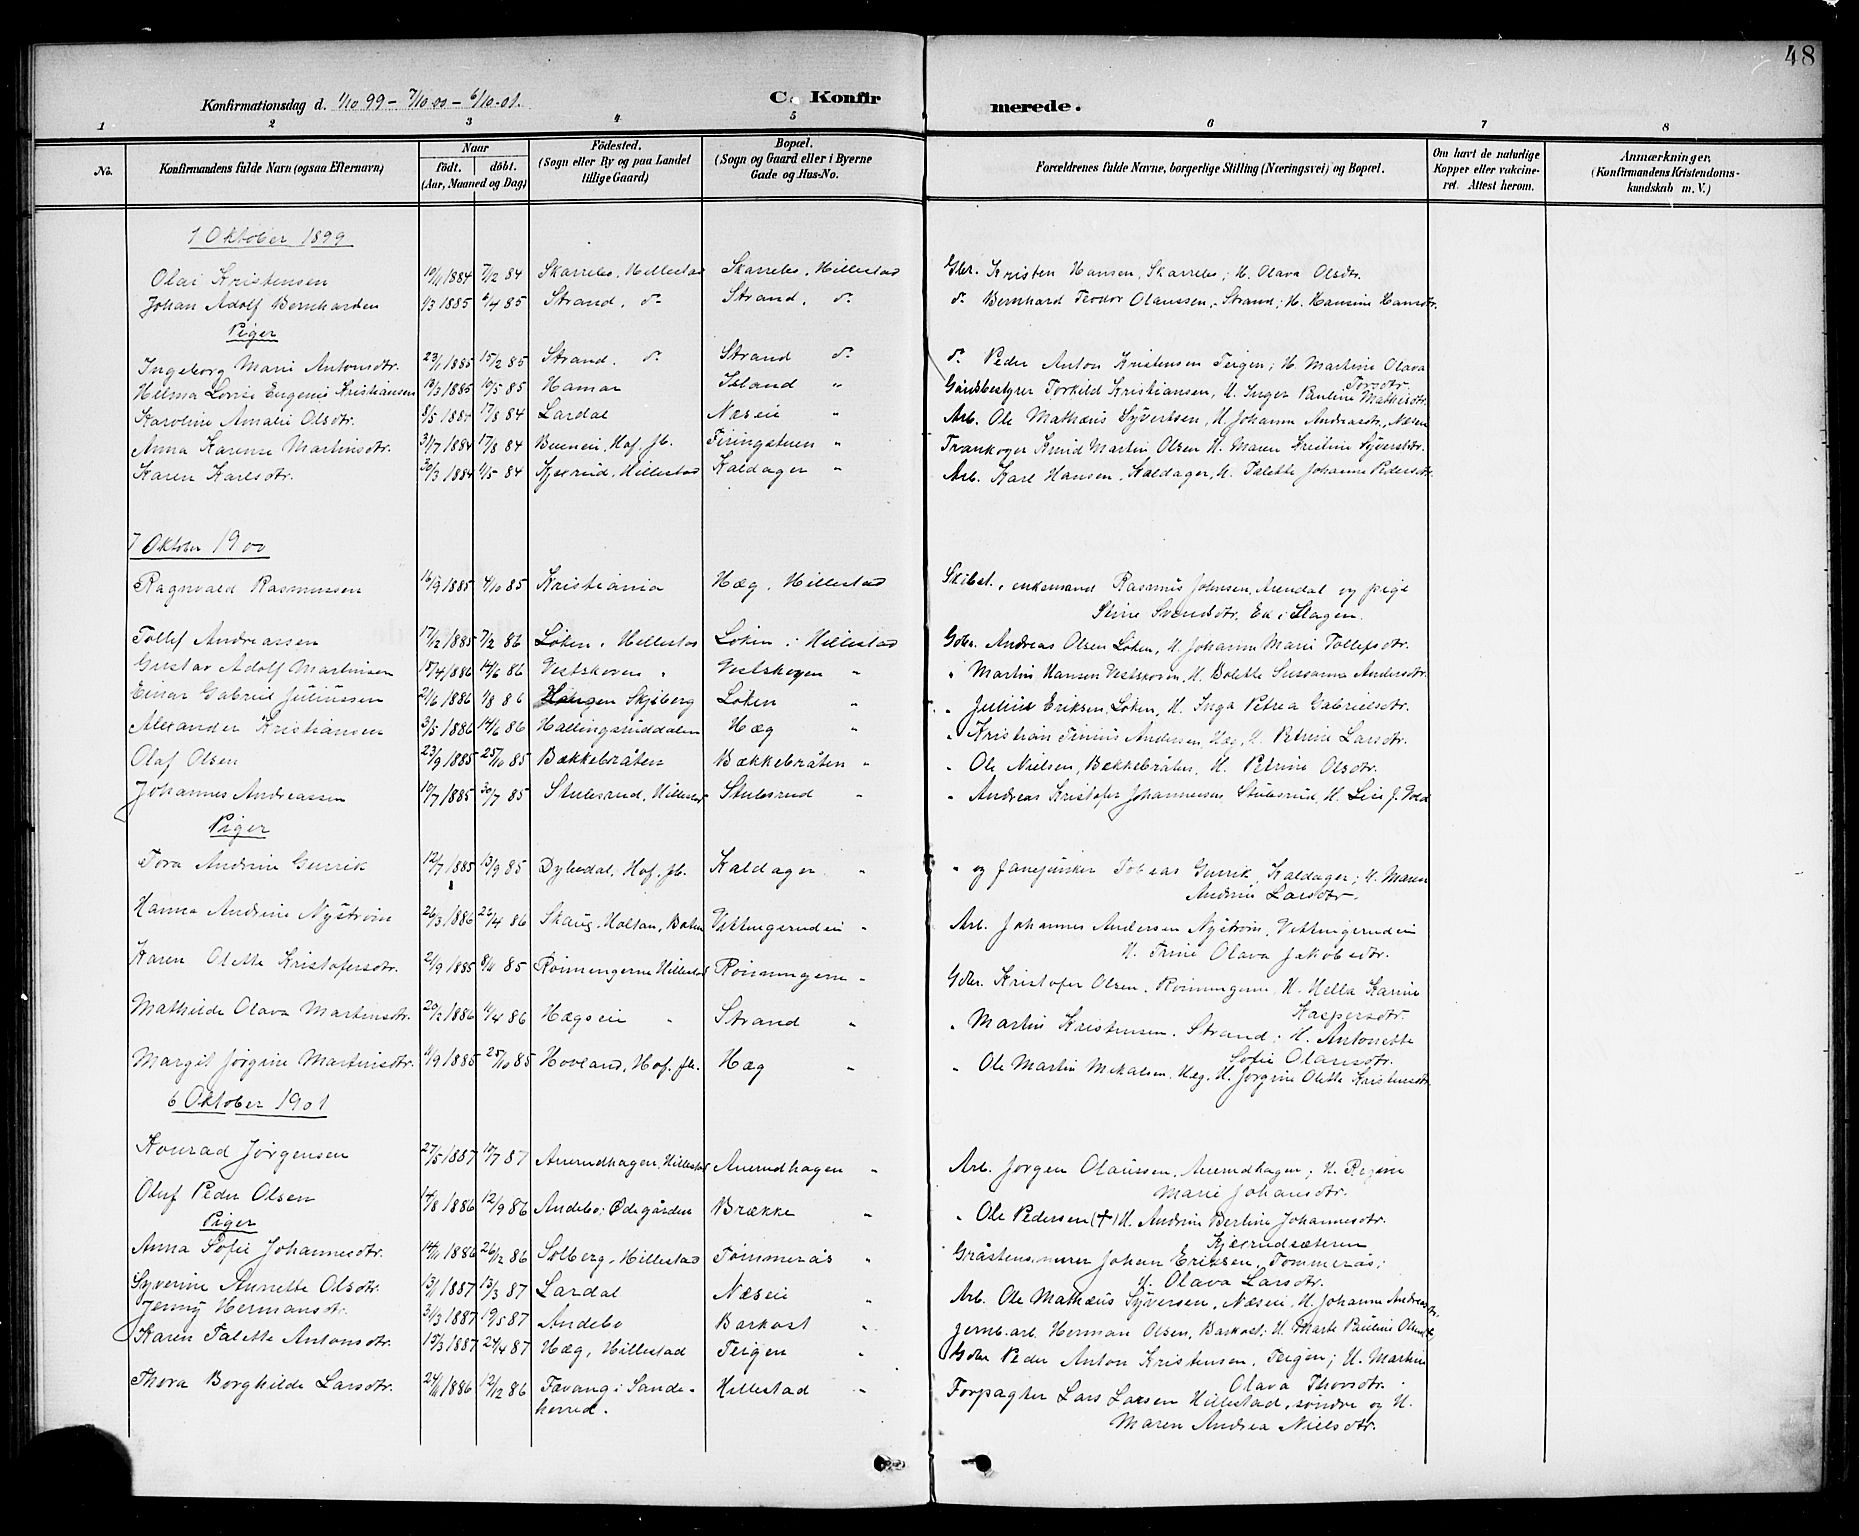 48
Konfirmationsdag d. 1/10 99 - 7/10 00 - 6/10-01. C. Konfirmerede.
1 2 3 4 5 6 7 8
No. Konfirmandens fulde Navn (ogsaa Efternavn) Naar født. døbt. (Aar, Maaned og Dag) Fødested. (Sogn eller By og paa Landet tillige Gaard) Bopæl. (Sogn og Gaard eller i Byerne Gade og Hus-No. Forældrenes fulde Navne, borgerlige Stilling (Næringsvei) og Bopæl. Om havt de naturlige Kopper eller vakcineret. Attest herom. Anmærkninger. (Konfirmandens Kristendomskundskab m. V.)
1 Oktober 1899
Olai Kristensen 19/11 1884 7/12 84 Skarrebo, Hillestad Skarrebo, Hillestad Gbr. Kristen Hansen, Skarrebo; H. Olava Olsdtr.
Johan Adolf Bernhardsen 1/3 1885 6/4 85 Strand, do Strand, do do Bernhard Teodor Olaussen, Strand; H. Hansine Hansdtr.
Piger
Ingeborg Marie Antonsdtr. 23/1 1885 15/2 85 Strand. do Strand do do Peder Anton Kristensen Teigen; H. Martine Olava Torsdtr.
Hilma Lovise Eugenie Kristiansen 19/3 1885 10/5 85 Hamar Island " Gårdsbestyrer Torkild Kristiansen, H. Inger Pauline Mathisdtr.
Karoline Amalie Olsdtr. 8/5 1884 17/8 84 Lardal Næseie " Arb. Ole Mathæus Syvertsen, H. Johanne Andreasdtr., Næseie
Anna Karense Martinsdtr. 31/7 1884 17/8 84 Hof. Jb. Firingstuen " Trankoger Knud Martin Olsen H. Maren Kristine Syversdtr.
Karen Karlsdtr. 30/3 1884 1/5 84 Kjexrud, Hillestad Kaldager " Arb. Karl Hansen, Kaldager, H. Talette Johanne Pedersdtr.
7 Oktober 1900
Ragnvald Rasmussen 16/9 1885 4/10 85 Kristiania Hæg, Hillestad Skibst., enkemand Rasmus Johnsen, Arendal og pige
Stine Svendsdtr. Ek i Slagen.
Tollef Andreassen 17/12 1885 7/2 86 Løken, Hillestad Løken i Hillestad Gdbr. Andreas Olsen Løken, H. Johanne Marie Tollefsdtr.
Gustav Adolf Martinsen 18/4 1886 14/6 86 Vestskoven " Vestskogen " " Martin Hansen Vestskoven, H. Bolette Sussanna Andersdtr.
Einar Gabriel Juliussen 21/6 1886 1/8 86 Skjeberg Løken " " Julius Eriksen, Løken, H. Inga Petrea Gabrielsdtr.
Alexander Kristiansen 3/5 1886 14/6 86 Hallingsruddalen Hæg " " Kristian Tinius Andersen, Hæg, H. Petrine Larsdtr.
Olaf Olsen 23/9 1885 25/10 85 Bækkebråten Bækkebråten " " Ole Nielsen, Bekkebråten, H. Petrine Olsdtr.
Johannes Andreassen 10/7 1885 30/7 85 Stulesrud, Hillestad Stulesrud " " Andreas Kristofer Johannessen, Stulesrud, H. Lise J. Vold
Piger
Tora Andrine Gurrik 12/7 1885 13/9 85 Dybedal, Hof. Jb. Kaldager " " og fanejunker Tobias Gurrik, Kaldager; H. Maren
Andrine Larsdtr.
Hanna Andrine Nystrøm 26/3 1886 26/4 86 Skaug, Holtan, Botne Vittingerudeie " Arb. Johannes Andersen Nystrøm, Vittingerudeie
H. Trine Olava Jakobsdtr.
Karen Olette Kristofersdtr. 21/9 1885 8/11 85 Rønningene Hillestad Rønningene " Gdbr. Kristofer Olsen, Rønningene, H. Hella Karine
Kaspersdtr.
Mathilde Olava Martinsdtr. 20/2 1886 11/4 86 Hægseie " Strand " " Martin Kristensen, Strand; H. Antonette
Sofie Olausdtr.
Margit Jørgine Martinsdtr. 11/9 1885 25/10 85 Hovland, Hof. Jb. Hæg " " Ole Martin Mikalsen, Hæg, H. Jørgine Olette Kristensdtr.
6 Oktober 1901
Konrad Jørgensen 27/5 1887 10/7 87 Anerudhagen, Hillestad Anerudhagen " Arb. Jørgen Olaussen, Anerudhagen; H. Regine
Marie Johansdtr.
Oluf Peder Olsen 14/8 1886 12/9 86 Andebo; Ødegården Brække " " Ole Pedersen (+) H. Andrine Berline Johannesdtr.
Kjærudsæteren
Piger
Anna Sofie Johannesdtr. 14/11 1886 26/12 86 Solberg, Hillestad Tømmerås " Gråstensmurer Johan Eriksen, Tømmerås;
H. Olava Larsdtr.
Syverine Annette Olsdtr. 13/1 1887 13/3 87 Lardal Næseie " Arb. Ole Mathæus Syversen, Næseie, H. Johanne Andreasdtr.
Jenny Hermansdtr. 31/3 1887 19/5 87 Andebo Barkost " Jernb. arb. Herman Olsen, Barkost; H. Marte Pauline Olsendtr.
Karen Talette Antonsdtr. 15/3 1887 24/4 87 Hæg, Hillestad Teigen " Gdbr Peder Anton Kristensen, Teigen; H. Martine
Olava Thorsdtr.
Thora Borghilde Larsdtr. 24/11 1886 12/12 86 Favang i Sandeherred. Hillestad " Forpagter Lars Larsen Hillestad, søndre og H.
Maren Andrea Nielsdtr.